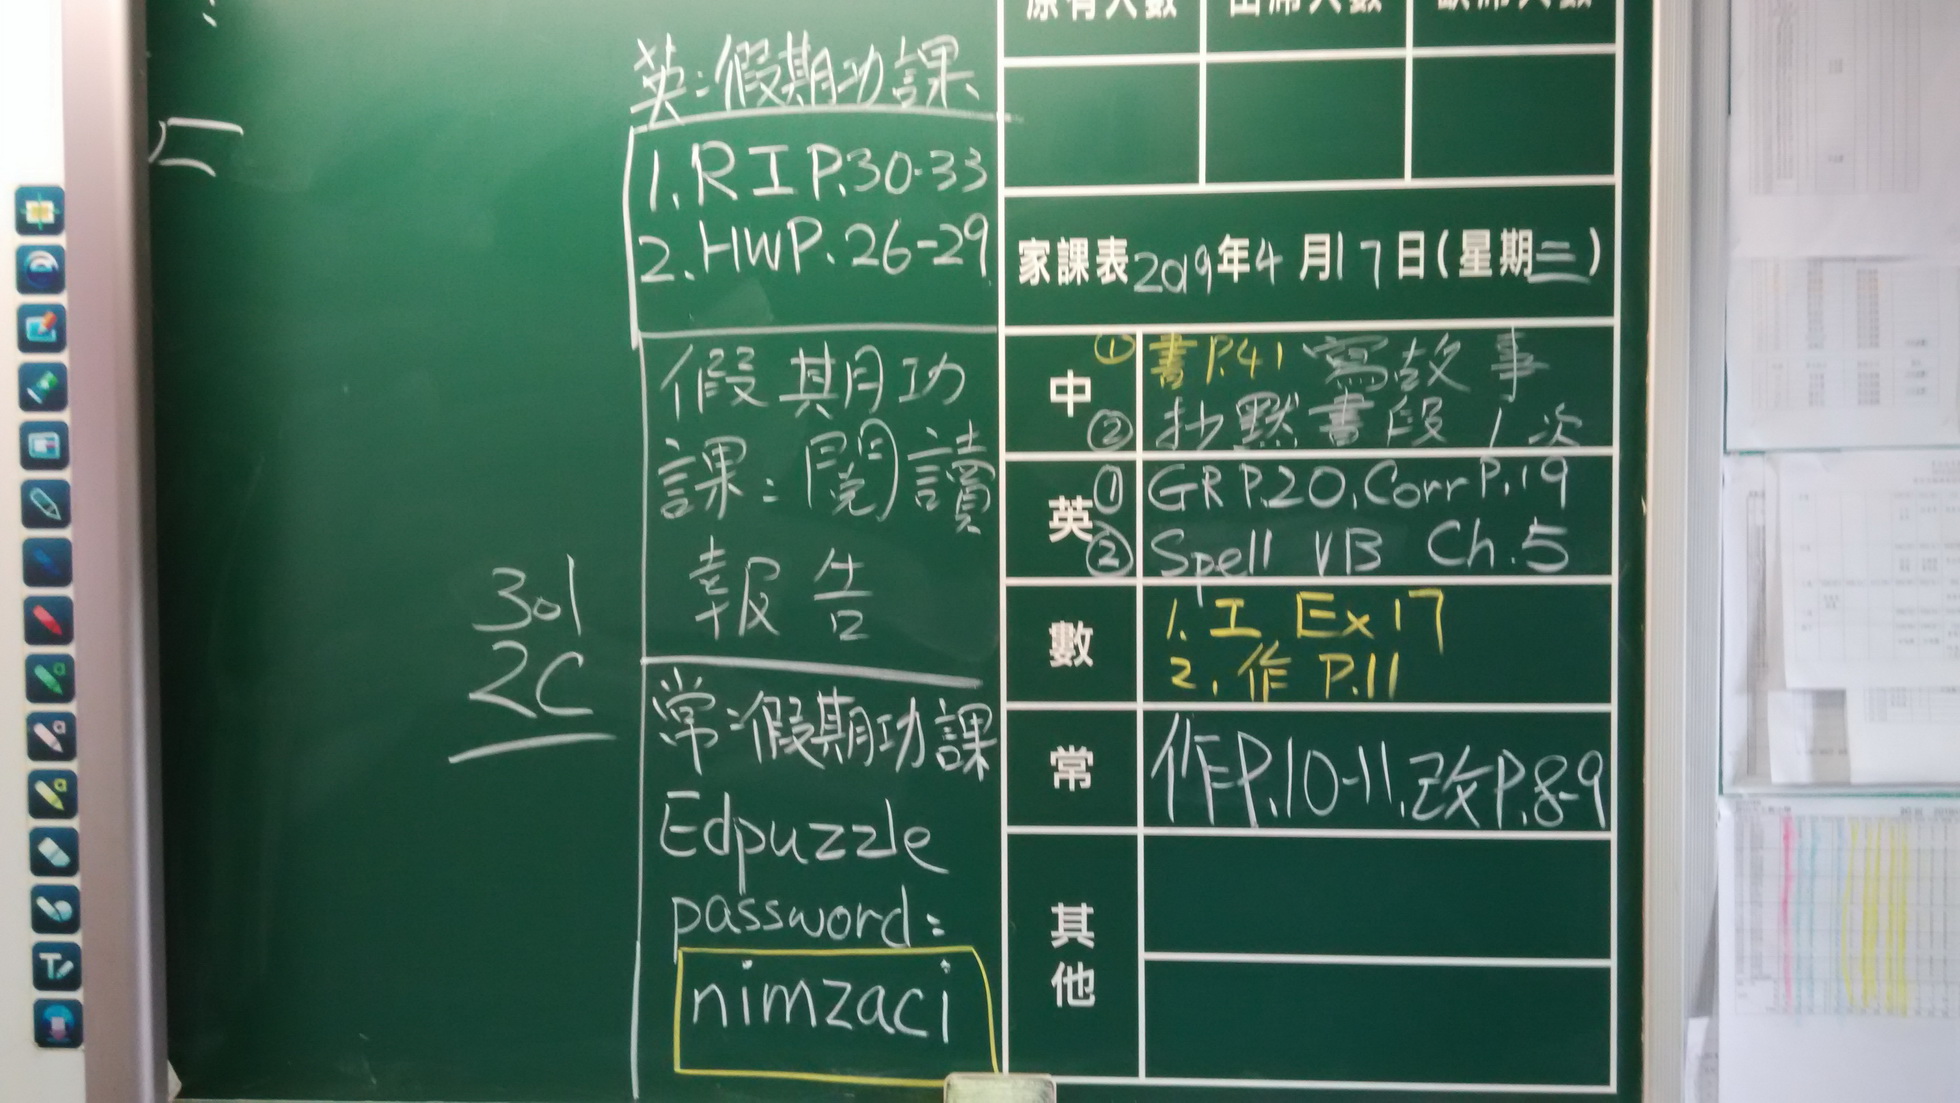 原有人數 出席人數 缺席人數
英:假期功課
1. RI P.30-33
2. HWP. 26-29
假期功
課:閱讀
報告
常:假期功課
Edpuzzle
password:
nimzaci
301
2C
家課表2019年4月17日(星期三)
中
① 書P.41 寫故事
② 抄默書段1次
英
① GR P.20, Corr P.19
② Spell VB Ch.5
數
1. 工 Ex 17
2. 作 P.11
常
作P.10-11,改P.8-9
其他